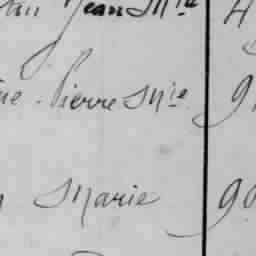 Jean Mie 4
Pierre Mie 9
Marie 90